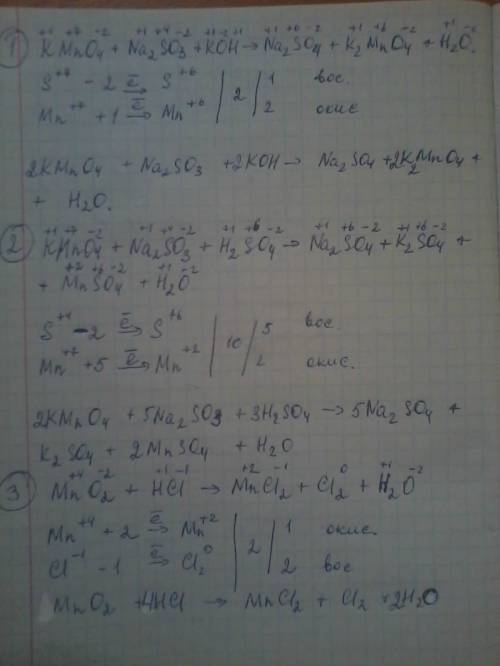 1) K⁺¹Mn⁺⁷O₄⁻² + Na₂⁺¹S⁺⁴O₃⁻² + K⁺¹O⁻²H⁺¹ → Na₂⁺¹S⁺⁶O₄⁻² + K₂⁺¹Mn⁺⁶O₄⁻² + H₂⁺¹O⁻².
− 2 ē → S⁺⁶ | 2 | 1 вос.
Mn⁺⁷ + 1 ē → Mn⁺⁶ | 2 окис
2KMnO₄ + Na₂SO₃ + 2KOH → Na₂SO₄ + 2K₂MnO₄ +
+ H₂O.
2) K⁺¹Mn⁺⁷O₄⁻² + Na₂⁺¹S⁺⁴O₃⁻² + H₂⁺¹S⁺⁶O₄⁻² → Na₂⁺¹S⁺⁶O₄⁻² + K₂⁺¹S⁺⁶O₄⁻² +
+ Mn⁺²S⁺⁶O₄⁻² + H₂⁺¹O⁻²
S⁺⁴ − 2 ē → S⁺⁶ | 10 | 5 вос.
Mn⁺⁷ + 5 ē → Mn⁺² | 2 окис.
2KMnO₄ + 5Na₂SO₃ + 3H₂SO₄ → 5Na₂SO₄ +
K₂SO₄ + 2MnSO₄ + H₂O
3) Mn⁺⁴O₂⁻² + H⁺¹Cl⁻¹ → Mn⁺²Cl₂⁻¹ + Cl₂⁰ + H₂⁺¹O⁻²
Mn⁺⁴ + 2 ē → Mn⁺² | 2 | 1 окис.
Cl⁻¹ − 1 ē → Cl₂⁰ | 2 вос
MnO₂ + 4HCl → MnCl₂ + Cl₂ + 2H₂O